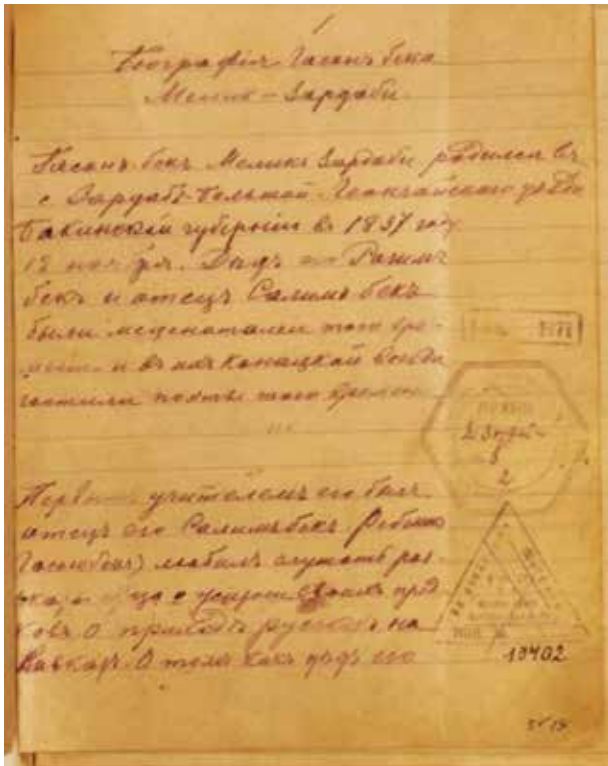 1
Биография Гасанъ бека
Мелик-Зардаби.
Гасанъ бекъ Меликъ Зардаби родился въ
с Зардабъ Геокчайскаго уезда
Бакинской губернiи въ 1837 году
12 ноября. Дядъ его Рагимъ
бекъ и отецъ Салимъ бекъ
были меценатами того вре-
мени и въ ихъ конацкой всегда
гостили поэты того времени
Первымъ учителемъ его былъ
отецъ его Салимъ бекъ Ребенкомъ
Гасанъбекъ) любилъ слушать раз-
сказы отца о своихъ пред
ковъ О приходѣ русскихъ на
Кавказъ. О томъ какъ дядъ его
3
2
10402